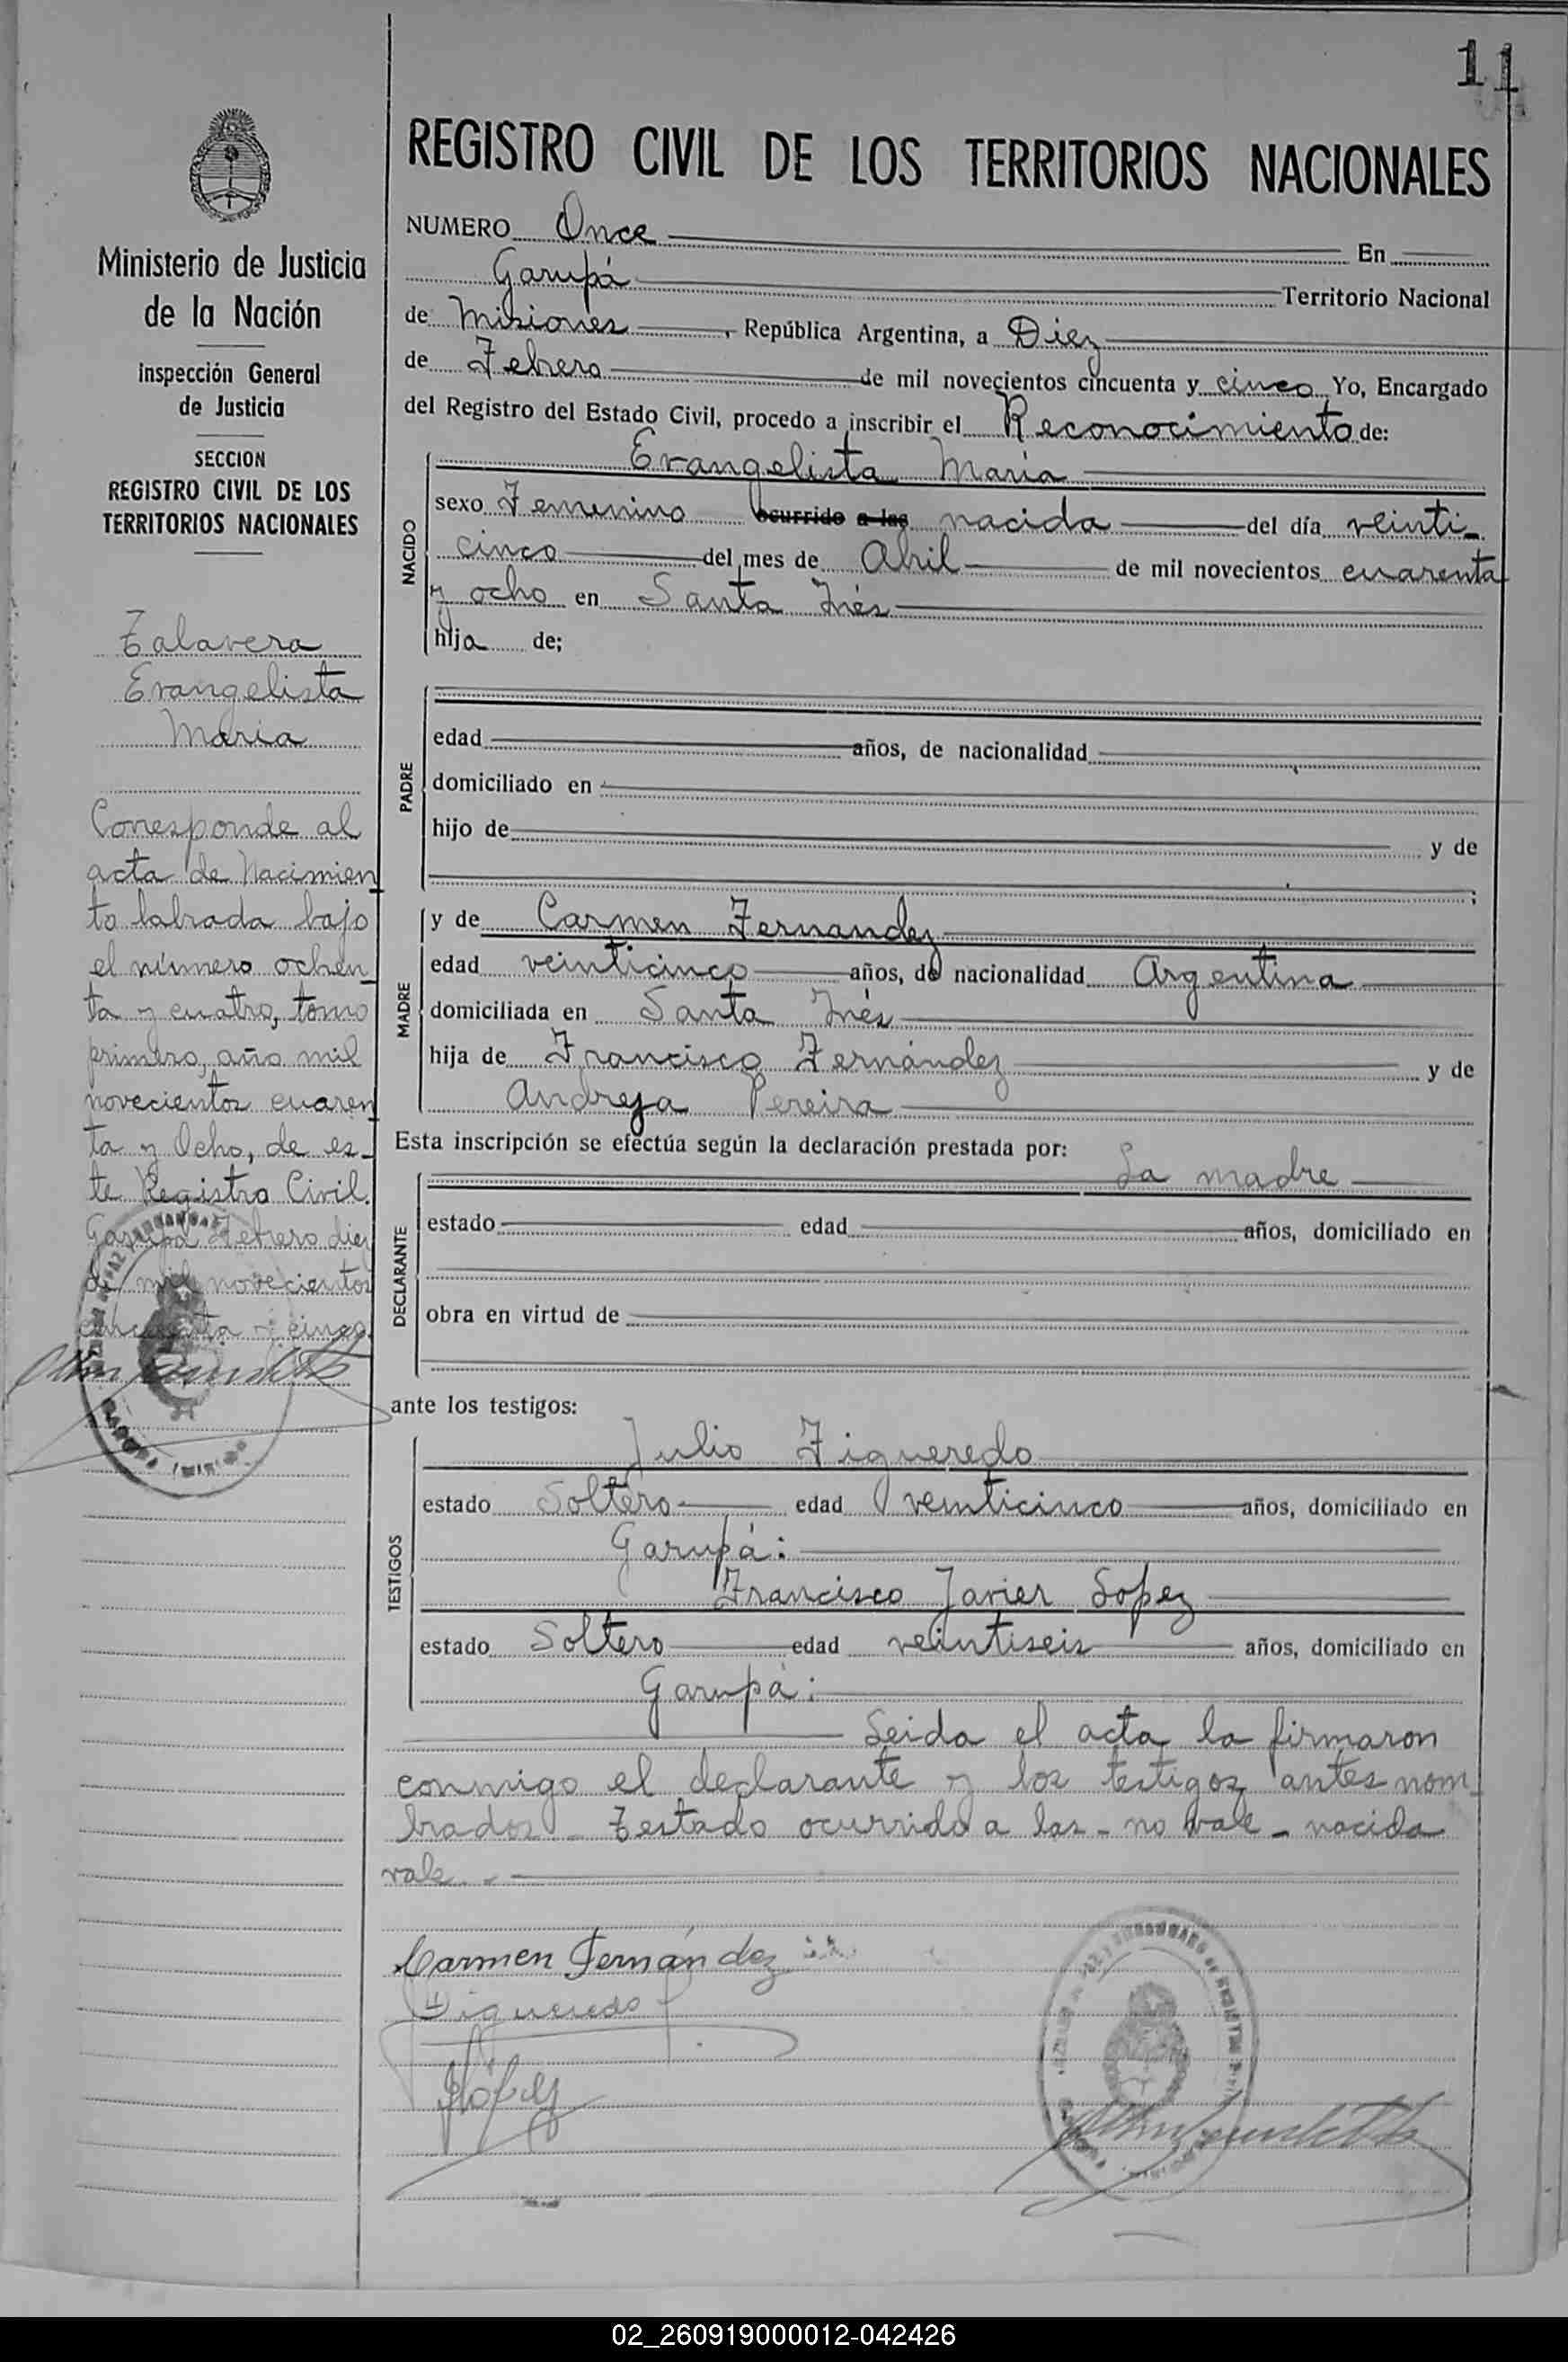 11
REGISTRO CIVIL DE LOS TERRITORIOS NACIONALES
Ministerio de Justicia
de la Nación
inspección General
de Justicia
SECCION
REGISTRO CIVIL DE LOS
TERRITORIOS NACIONALES
Talavera
Evangelista
Maria
Corresponde al
acta de Nacimien
to labrada bajo
el número ochen
ta y cuatro, tomo
primero, año mil
novecientos cuaren
ta y Ocho, de es-
te Registro Civil.
Garupá Febrero diez
de mil novecientos
cincuenta y cinco.
NUMERO Once En
Garupá Territorio Nacional
de Misiones, República Argentina, a Diez
de Febrero de mil novecientos cincuenta y cinco Yo, Encargado
del Registro del Estado Civil, procedo a inscribir el Reconocimiento de:
NACIDO
Evangelista María
sexo Femenino ocurrido a las nacida del día veinti-
cinco del mes de Abril de mil novecientos cuarenta
y ocho en Santa Inés
hija de;
PADRE
edad años, de nacionalidad
domiciliado en
hijo de y de
;
MADRE
y de Carmen Fernandez
edad veinticinco años, de nacionalidad Argentina
domiciliada en Santa Inés
hija de Francisco Fernández y de
Andreja Pereira
Esta inscripción se efectúa según la declaración prestada por:
La madre
DECLARANTE
estado edad años, domiciliado en
obra en virtud de
ante los testigos:
TESTIGOS
Julio Figueredo
estado Soltero edad veinticinco años, domiciliado en
Garupá:
Francisco Javier Lopez
estado Soltero edad veintiseis años, domiciliado en
Garupá:
Leida el acta la firmaron
conmigo el declarante y los testigos antes nom-
brados - Testado ocurrido a las - no vale - nacida
vale. -
Carmen Fernández
Figueredo
FJLópez
02_260919000012-042426